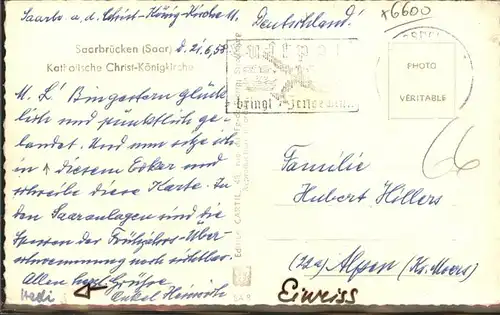 Saarbr. a. d. Christ-König-Kirche 11. Deutschland!
x6600
Saarbrücken (Saar) d. 21.6.58
Katholische Christ-Königkirche
Luftpost
bringt Zeitgewinn
PHOTO
VÉRITABLE
M. L! Bin gestern glück-
lich und pünktlich ge-
landet. Und nun sitze ich
in diesem Erker und
schreibe diese Karte. In
den Saaranlagen sind die
Spuren der Frühjahrs-Über-
schwemmung noch sichtbar.
Allen herzl. Grüße
Onkel Heinrich
Hedi
66
Familie
Hubert Hillers
(22a) Alpen (Kr. Moers)
Eiweiss
SA 9